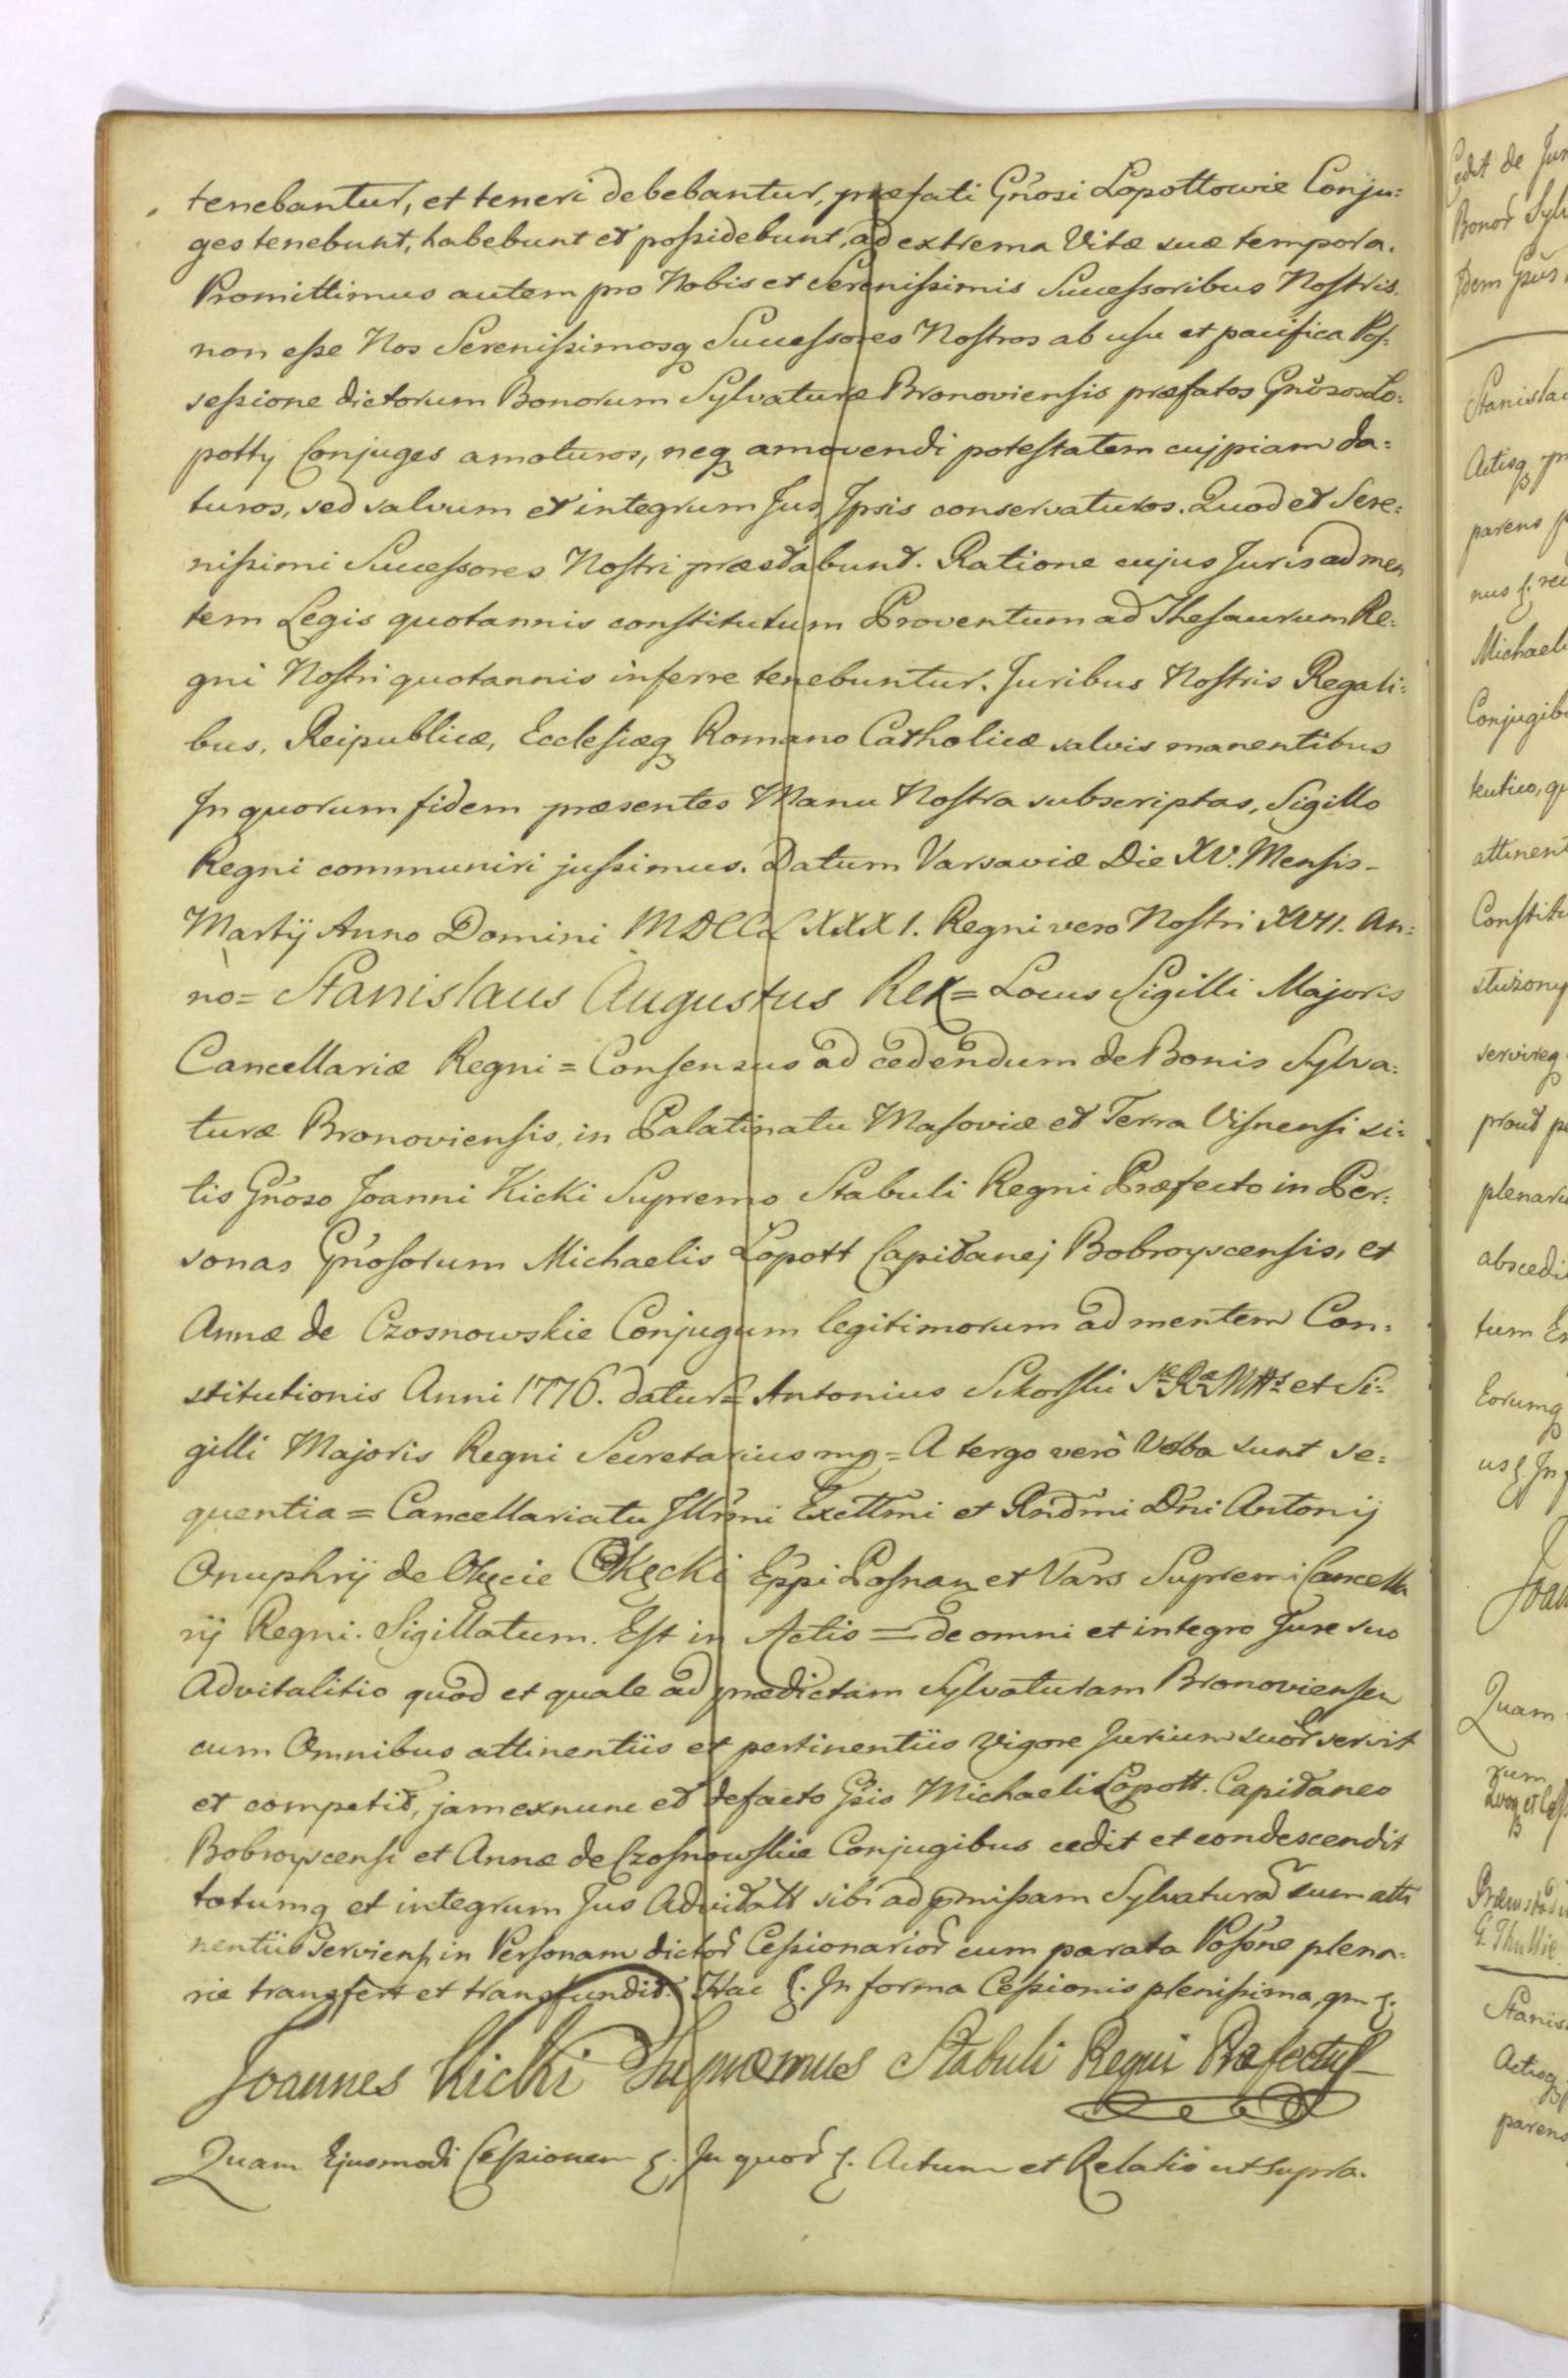 tenebantur, et teneri debebantur, præfati Gnosi Lopottowie Conju:
ges tenebunt, habebunt et possidebunt, ad extrema Vitæ suæ tempora.
Promittimus autem pro Nobis et Serenissimis Successoribus Nostris.
non esse Nos Serenissimosq Successores Nostros ab usu et pacifica Pos:
sessione dictorum Bonorum Sylvaturæ Bronoviensis præfatos Gnosos Lo:
potty Conjuges amoturos, neq amovendi potestatem cujpiam da:
turos, sed salvum et integrum Jus Ipsis conservaturos. Quod et Sere:
nissimi Successores Nostri præstabunt. Ratione cujus Juris ad men
tem Legis quotannis constitutum Proventum ad Thesaurum Re:
gni Nostri quotannis inferre tenebuntur. Juribus Nostris Regali:
bus, Reipublicæ, Ecclesiæq Romano Catholicæ salvis manentibus
In quorum fidem præsentes Manu Nostra subscriptas, Sigillo
Regni communiri jussimus. Datum Varsaviæ Die XV. Mensis -
Martij Anno Domini MDCCLXXXI. Regni vero Nostri XVII. An:
no = Stanislaus Augustus Rex = Locus Sigilli Majoris
Cancellariæ Regni = Consensus ad cedendum de Bonis Sylva:
turæ Bronoviensis, in Palatinatu Masoviæ et Terra Visnensi si:
tis Gnoso Joanni Kicki Supremo Stabuli Regni Præfecto in Per:
sonas Gnosorum Michaelis Lopott Capitanej Bobroyscensis, et
Annæ de Czosnowskie Conjugum legitimorum ad mentem Con:
stitutionis Anni 1776. datur = Antonius Sikorski Sæ Ræ Mttis et Si:
gilli Majoris Regni Secretarius mp = A tergo verò Verba sunt se:
quentia = Cancellariatu Illrmi Excttmi et Rndmi Dni Antonij
Onuphrij de Okęcie Okęcki Eppi Posnan et Vars Supremi Cancella
rij Regni. Sigillatum. Est in Actis = de omni et integro Jure suo
Advitalitio quod et quale ad prædictam Sylvaturam Bronoviensem
cum Omnibus attinentiis et pertinentiis Vigore Jurium suor servit
et competit, jam exnunc et defacto Gsis Michaeli Lopott. Capitaneo
Bobroyscensi et Annæ de Czosnowskie Conjugibus cedit et condescendit
totumq et integrum Jus Advitalt sibi ad pmissam Sylvatura cum atti
nentiis Serviens in Personam dictor Cessionarior cum parata Possne plena:
rie transfert et transfundit. Hac §. In forma Cessionis plenissima, qm §.
Joannes Kicki Supræmus Stabuli Regni Præfectus
Quam Ejusmodi Cessionem §. In quor §. Actum et Relatio ut supra.